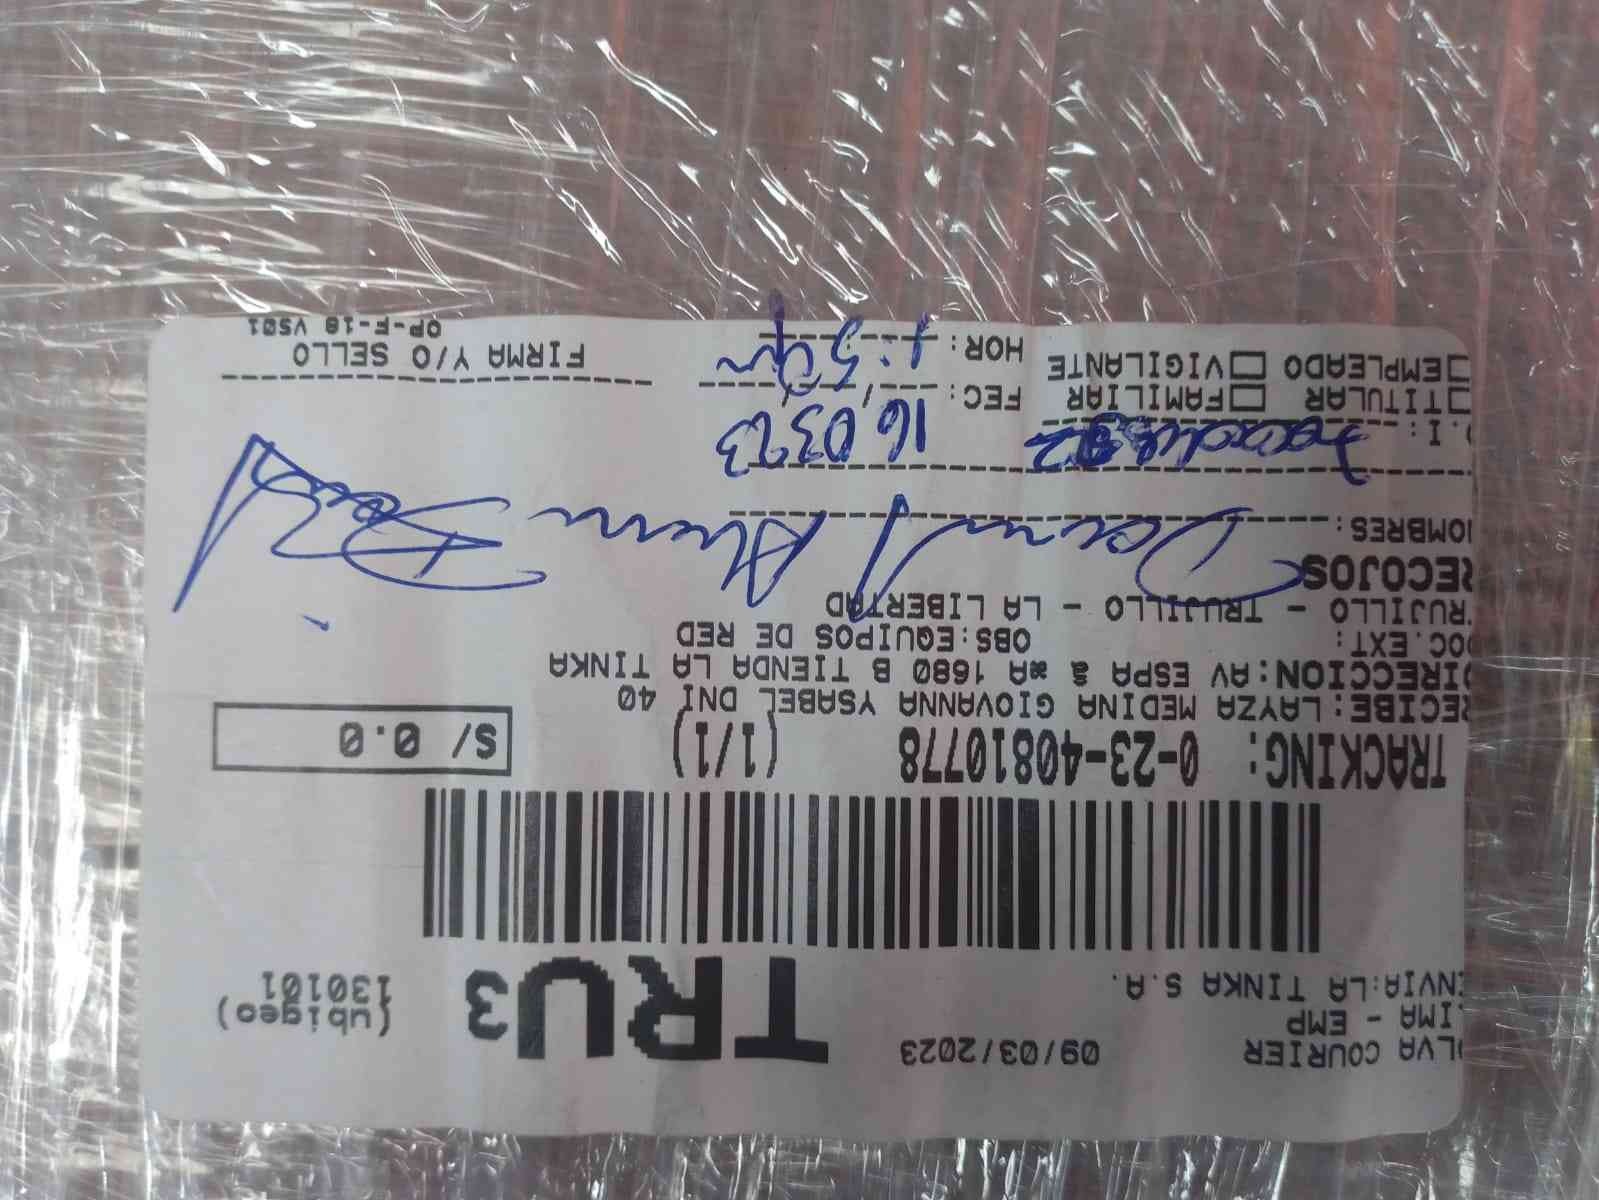 OLVA COURIER 09/03/2023 TRU3 (ubigeo)
LIMA - EMP 130101
ENVIA:LA TINKA S.A.
TRACKING: 0-23-40810778 (1/1) S/ 0.0
RECIBE:LAYZA MEDINA GIOVANNA YSABEL DNI 40
DIRECCION:AV ESPA â æA 1680 B TIENDA LA TINKA
DOC.EXT: OBS:EQUIPOS DE RED
TRUJILLO - TRUJILLO - LA LIBERTAD
RECOJOS
NOMBRES:
.I:
TITULAR FAMILIAR FEC: 16/03/23
EMPLEADO VIGILANTE HOR: 1:50pm
FIRMA Y/O SELLO
OP-F-18 VS01